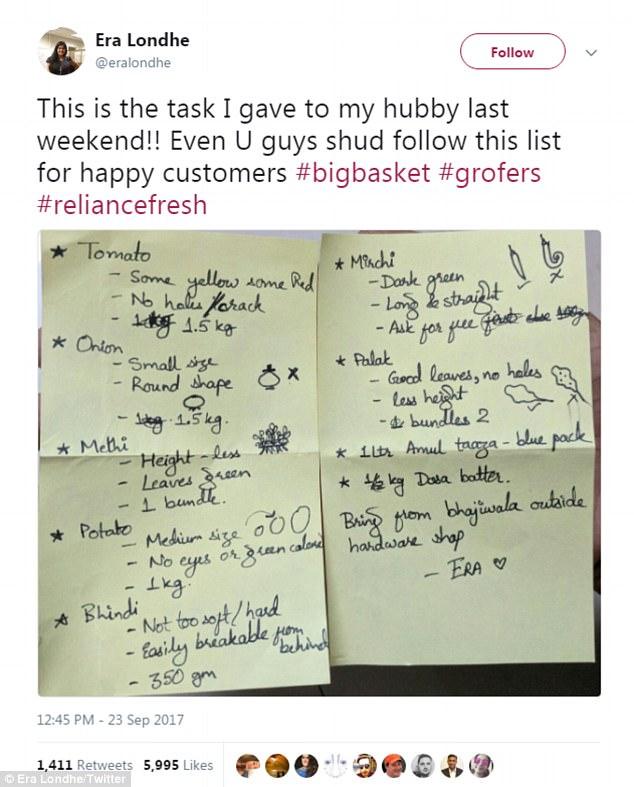 Era Londhe
@eralondhe
Follow
This is the task I gave to my hubby last
weekend!! Even U guys shud follow this list
for happy customers #bigbasket #grofers
#reliancefresh
★ Tomato
- Some yellow some Red
- No holes / crack
- 1.5 kg
★ Onion
- Small size
- Round shape
- 1.5 kg.
★ Methi
- Height - less
- Leaves green
- 1 bundle.
★ Potato
- Medium size
- No eyes or green colored
- 1 kg.
★ Bhindi
- Not too soft / hard
- Easily breakable from
behind
- 350 gm
★ Mirchi
- Dark green
- Long & straight
- Ask for free
★ Palak
- Good leaves, no holes
- less height
- bundles 2
★ 1 Ltr Amul taaza - blue pack
★ 1/2 kg Dosa batter.
Bring from bhajiwala outside
hardware shop
- ERA ♡
12:45 PM - 23 Sep 2017
1,411 Retweets 5,995 Likes
© Era Londhe/Twitter